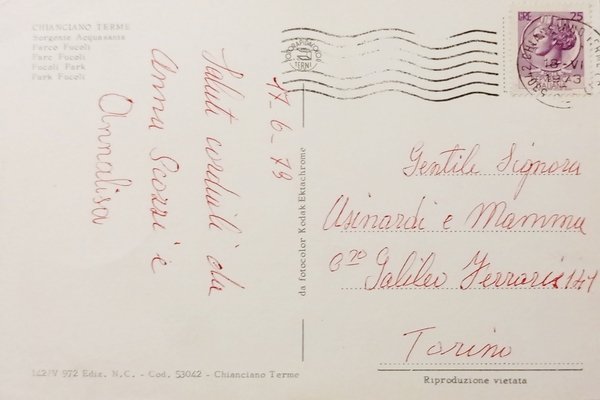 CHIANCIANO TERME
Sorgente Acquasanta
Parco Fucoli
Parc Fucoli
Fucoli Park
Park Fucoli
17-6-73
Saluti cordiali da
Anna Scozzi e
Annalisa
da fotocolor Kodak Ektachrome
LIRE 25
18-VI
1973
TERNI
Gentile Signora
Asinardi e Mamma
C.so Galileo Ferraris 141
Torino
Riproduzione vietata
142/V 972 Ediz. N.C. - Cod. 53042 - Chianciano Terme